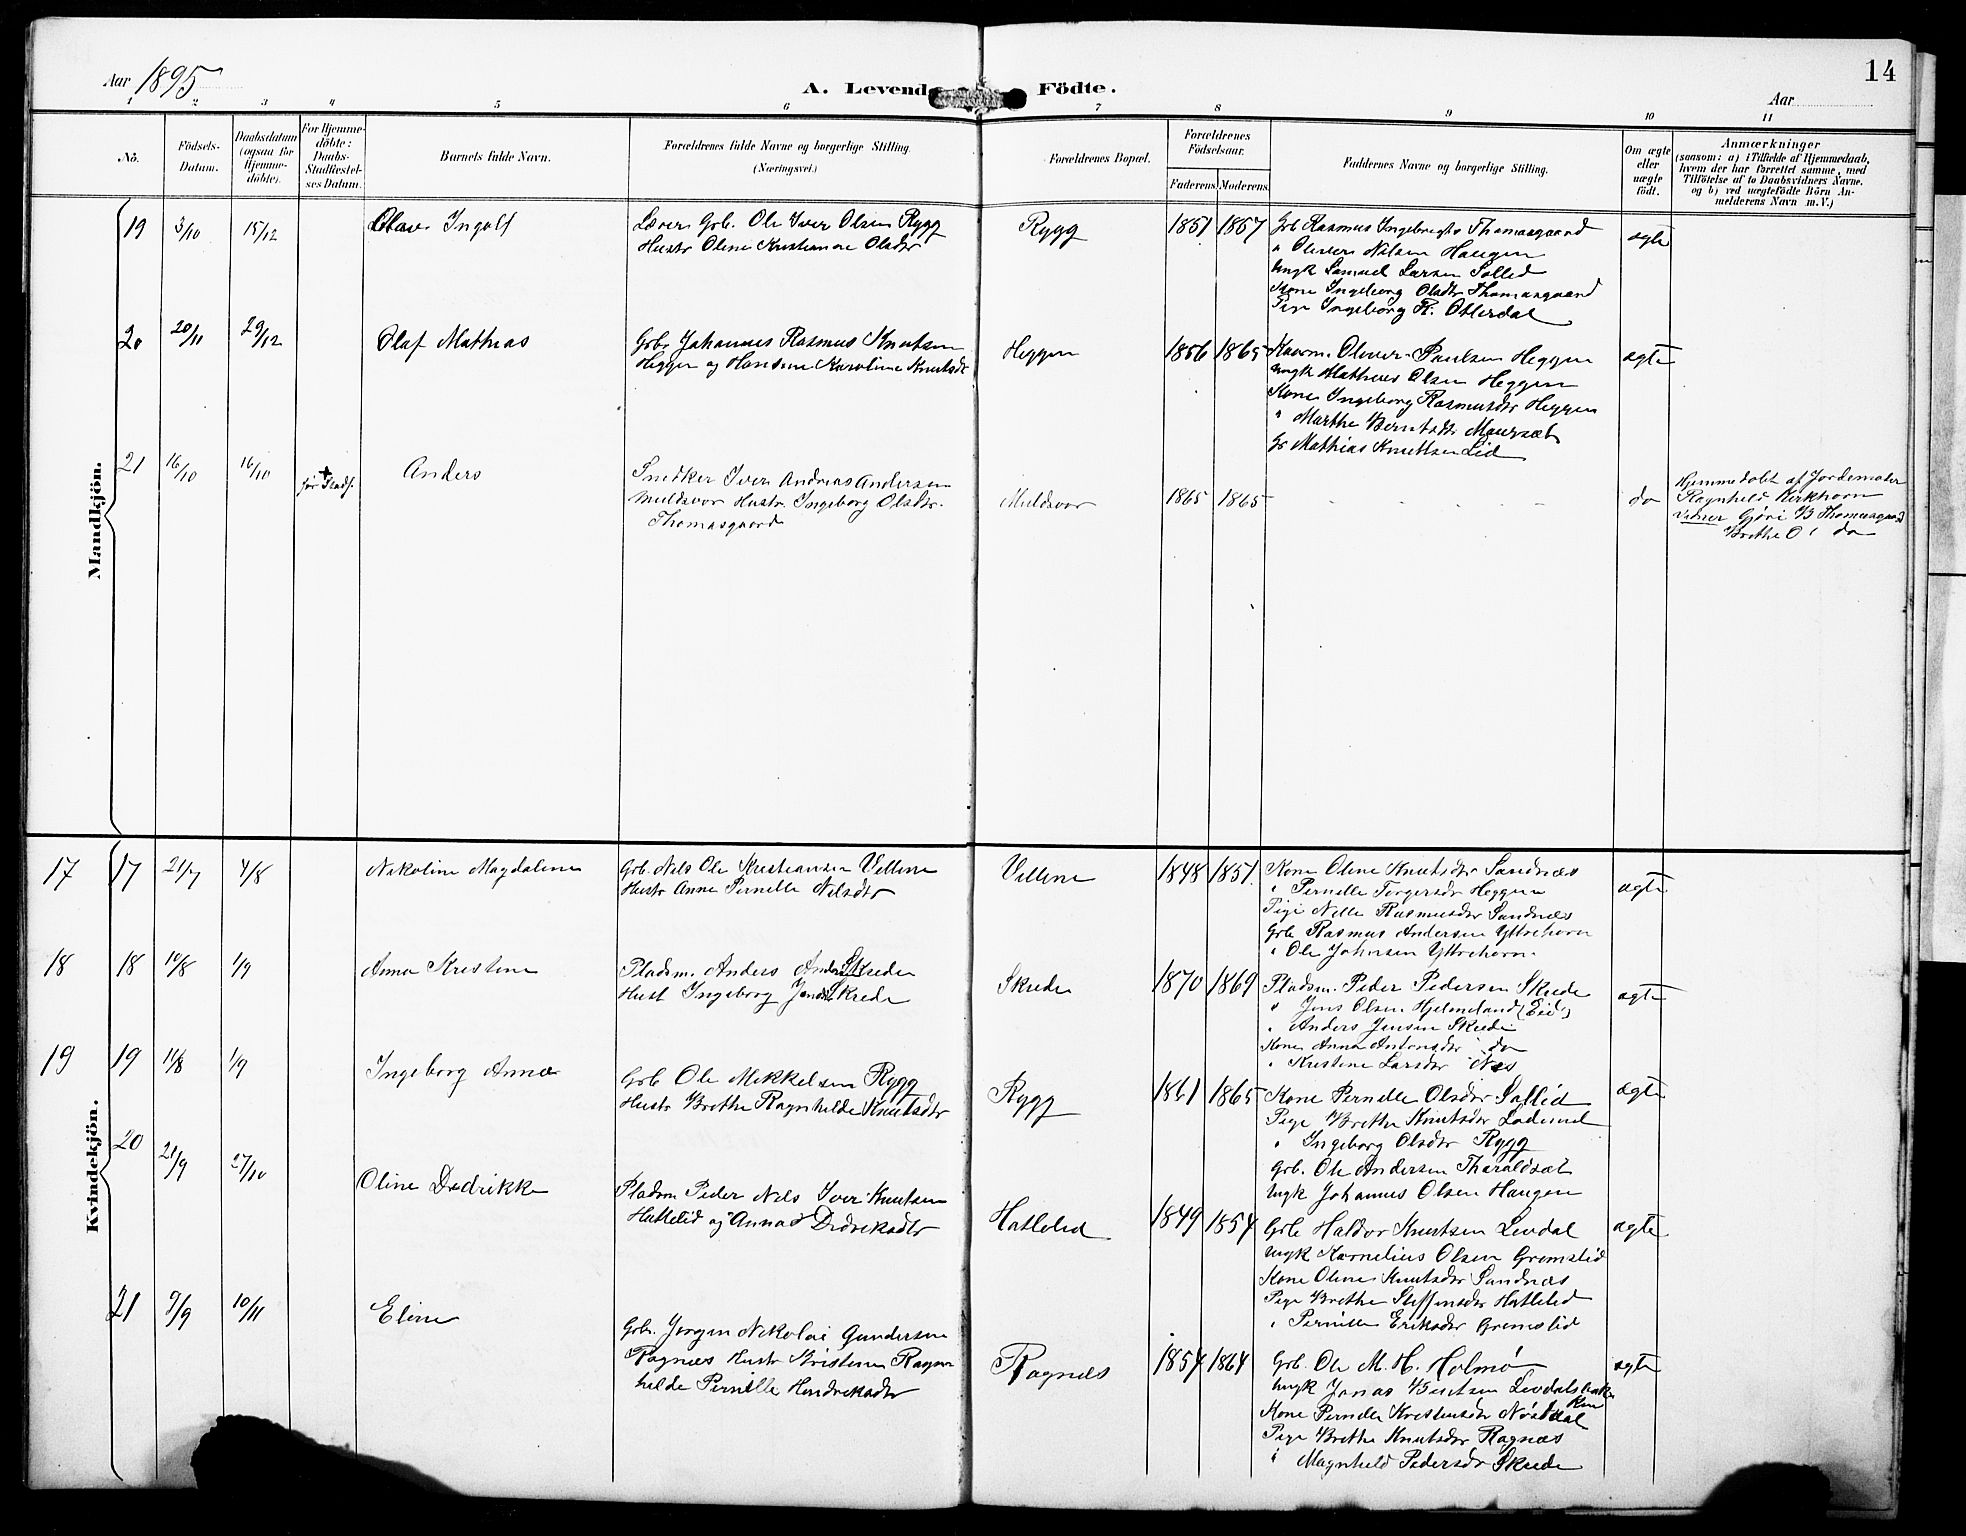 Aar 1895
A. Levende Födte.
Aar
14
1 2 3 4 5 6 7 8 9 10 11
No.
Födsels-Datum.
Daabsdatum (ogsaa for Hjemme-döbte).
For Hjemme-döbte: Daabs-Stadfæstel-ses Datum.
Barnets fulde Navn.
Forældrenes fulde Navne og borgerlige Stilling (Næringsvei.)
Forældrenes Bopæl.
Forældrenes Födselsaar.
Faderens.
Moderens.
Faddernes Navne og borgerlige Stilling.
Om ægte eller uægte födt.
Anmærkninger
(saasom: a) i Tilfælde af Hjemmedaab,
hvem der har forrettet samme, med
Tilföielse af to Daabsvidners Navne,
og b) ved uægtefödte Börn An-
melderens Navn m.V.)
Mandkjön.
19 3/10 15/12 Olav Ingolf
Lærer Grb. Ole Iver Olsen Rygg
Hustr Oline Kristianne Olsdtr
Rygg 1851 1857
Grb Rasmus Ingebrigts Thomasgaard
" Oliver Nilsen Haugen
Ungk Samuel Larsen Sollid
Kone Ingeborg Olsdtr Thomasgaard
Pige Ingeborg R. Otterdal
ægte
20 20/11 29/12 Olaf Mathias
Grbr Johannes Rasmus Knutsen
Heggen og Hansine Karoline Knutsdr
Heggen 1856 1865
Kaarm. Oliver Paulsen Heggen
Ungk Mathias Olsen Heggen
Kone Ingeborg Rasmusdtr Heggen
" Marthe Berntsdtr Maursæt
Gr Mathias Knutsen Lid
ægte
21 16/10 16/10 + før Stadf. Anders
Snedker Iver Andreas Andersen
Muldsvor Hustr Ingeborg Olsdtr.
Thomasgaard
Muldsvor 1865 1865 - - - -
do
Hjemmedøbt af Jordemoder
Ragnhild Kirkhorn
Vidner Gjøri B Thomasgaard
Brithe O. do
Kvindekjön.
17 17 21/7 4/8 Nikoline Magdalene
Grb. Nils Ole Kristiansen Vellene
Hustr Anne Pernille Nilsdtr
Vellene 1848 1851
Kone Oline Knutsdtr Sandnæs
" Pernille Torgersdr Heggen
Pige Nille Rasmusdtr Sandnæs
Grb Rasmus Andersen Yttrehorn
" Ole Johnsen Yttrehorn
ægte
18 18 10/8 1/9 Anna Kristine
Pladsm. Anders Anders Skrede
Hust Ingeborg Jonsd Skrede
Skrede 1870 1869
Pladsm. Peder Pedersen Skrede
" Jens Olsen Hjelmeland (Eid)
" Anders Jensen Skrede
Kone Anna Antonsdtr do
" Kristine Larsdtr Nes
ægte
19 19 11/8 1/9 Ingeborg Anna
Grb Ole Mikkelsen Rygg
Hustr Brithe Ragnhilde Knutsdtr
Rygg 1861 1865
Kone Pernille Olsdtr Sollid
Pige Brithe Knutsdtr
" Ingeborg Olsdtr Rygg
Grb. Ole Andersen Tharaldsæt
Ungk Johannes Olsen Haugen
ægte
20 21/9 27/10 Oline Dedrikke
Pladsm Peder Nils Iver Knutsen
Hatlelid og Anna Didriksdtr
Hatlelid 1849 1854
Grb Haldor Knutsen Levdal
Ungk Kornelius Olsen Gremslid
Kone Oline Knutsdtr Sandnæs
Pige Brithe Steffensdtr Hatlelid
" Pernille Eriksdtr Gremslid
ægte
21 9/9 10/11 Eline
Grb. Jørgen Nikolai Gundersen
Ragnæs Hustr Kristine Ragn
hilde Pernille Hendriksdtr
Ragnæs 1854 1864
Grb. Ole M. H. Holmø
Ungk Jonas Berntsen Levdalsbak
ken
Kone Pernille Kristensdtr Nøsdal
Pige Brithe Knutsdtr Ragnæs
" Magnhild Pedersdr Skrede
ægte